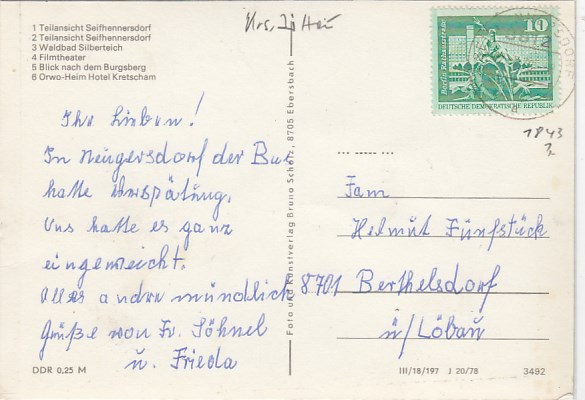 1 Teilansicht Seifhennersdorf
2 Teilansicht Seifhennersdorf
3 Waldbad Silberteich
4 Filmtheater
5 Blick nach dem Burgsberg
6 Orwo-Heim Hotel Kretscham
Ihr Lieben!
In Neugersdorf der Bus
hatte Verspätung.
Uns hatte es ganz
eingeweicht.
Alles andre mündlich
Grüße von Fr. Söhnel
u. Frieda
DDR 0,25 M
Foto und Kunstverlag Bruno Scholz, 8705 Ebersbach
10
Berlin Rathausstraße
DEUTSCHE DEMOKRATISCHE REPUBLIK
1843
?
Fam
Helmut Fünfstück
8701 Berthelsdorf
ü/Löbau
III/18/197 J 20/78
3492